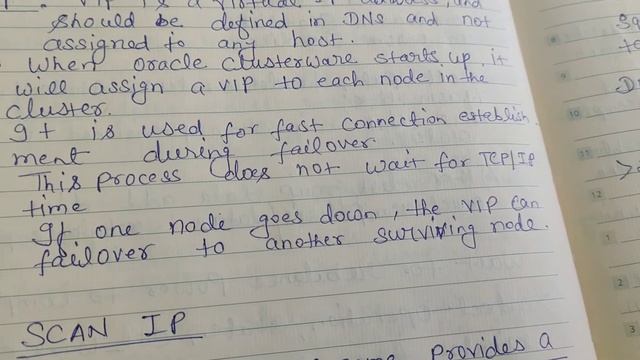 VIP is a virtual IP address, and
should be defined in DNS and not
assigned to any host.
When oracle clusterware starts up, it
will assign a VIP to each node in the
cluster.
It is used for fast connection establish
ment during failover.
This process does not wait for TCP/IP
time
If one node goes down, the VIP can
failover to another surviving node.
SCAN IP
Provides a
10
11
12
1
2
3